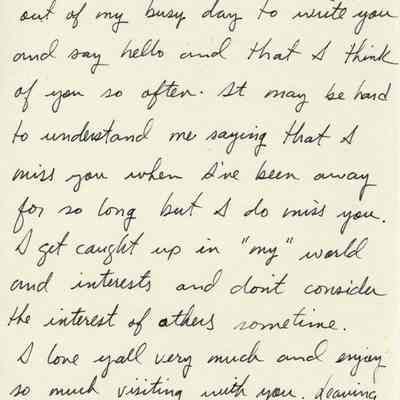 out of my busy day to write you
and say hello and that I think
of you so often. It may be hard
to understand me saying that I
miss you when I've been away
for so long but I do miss you.
I get caught up in "my" world
and interests and don't consider
the interest of others sometime.
I love yall very much and enjoy
so much visiting with you. Leaving